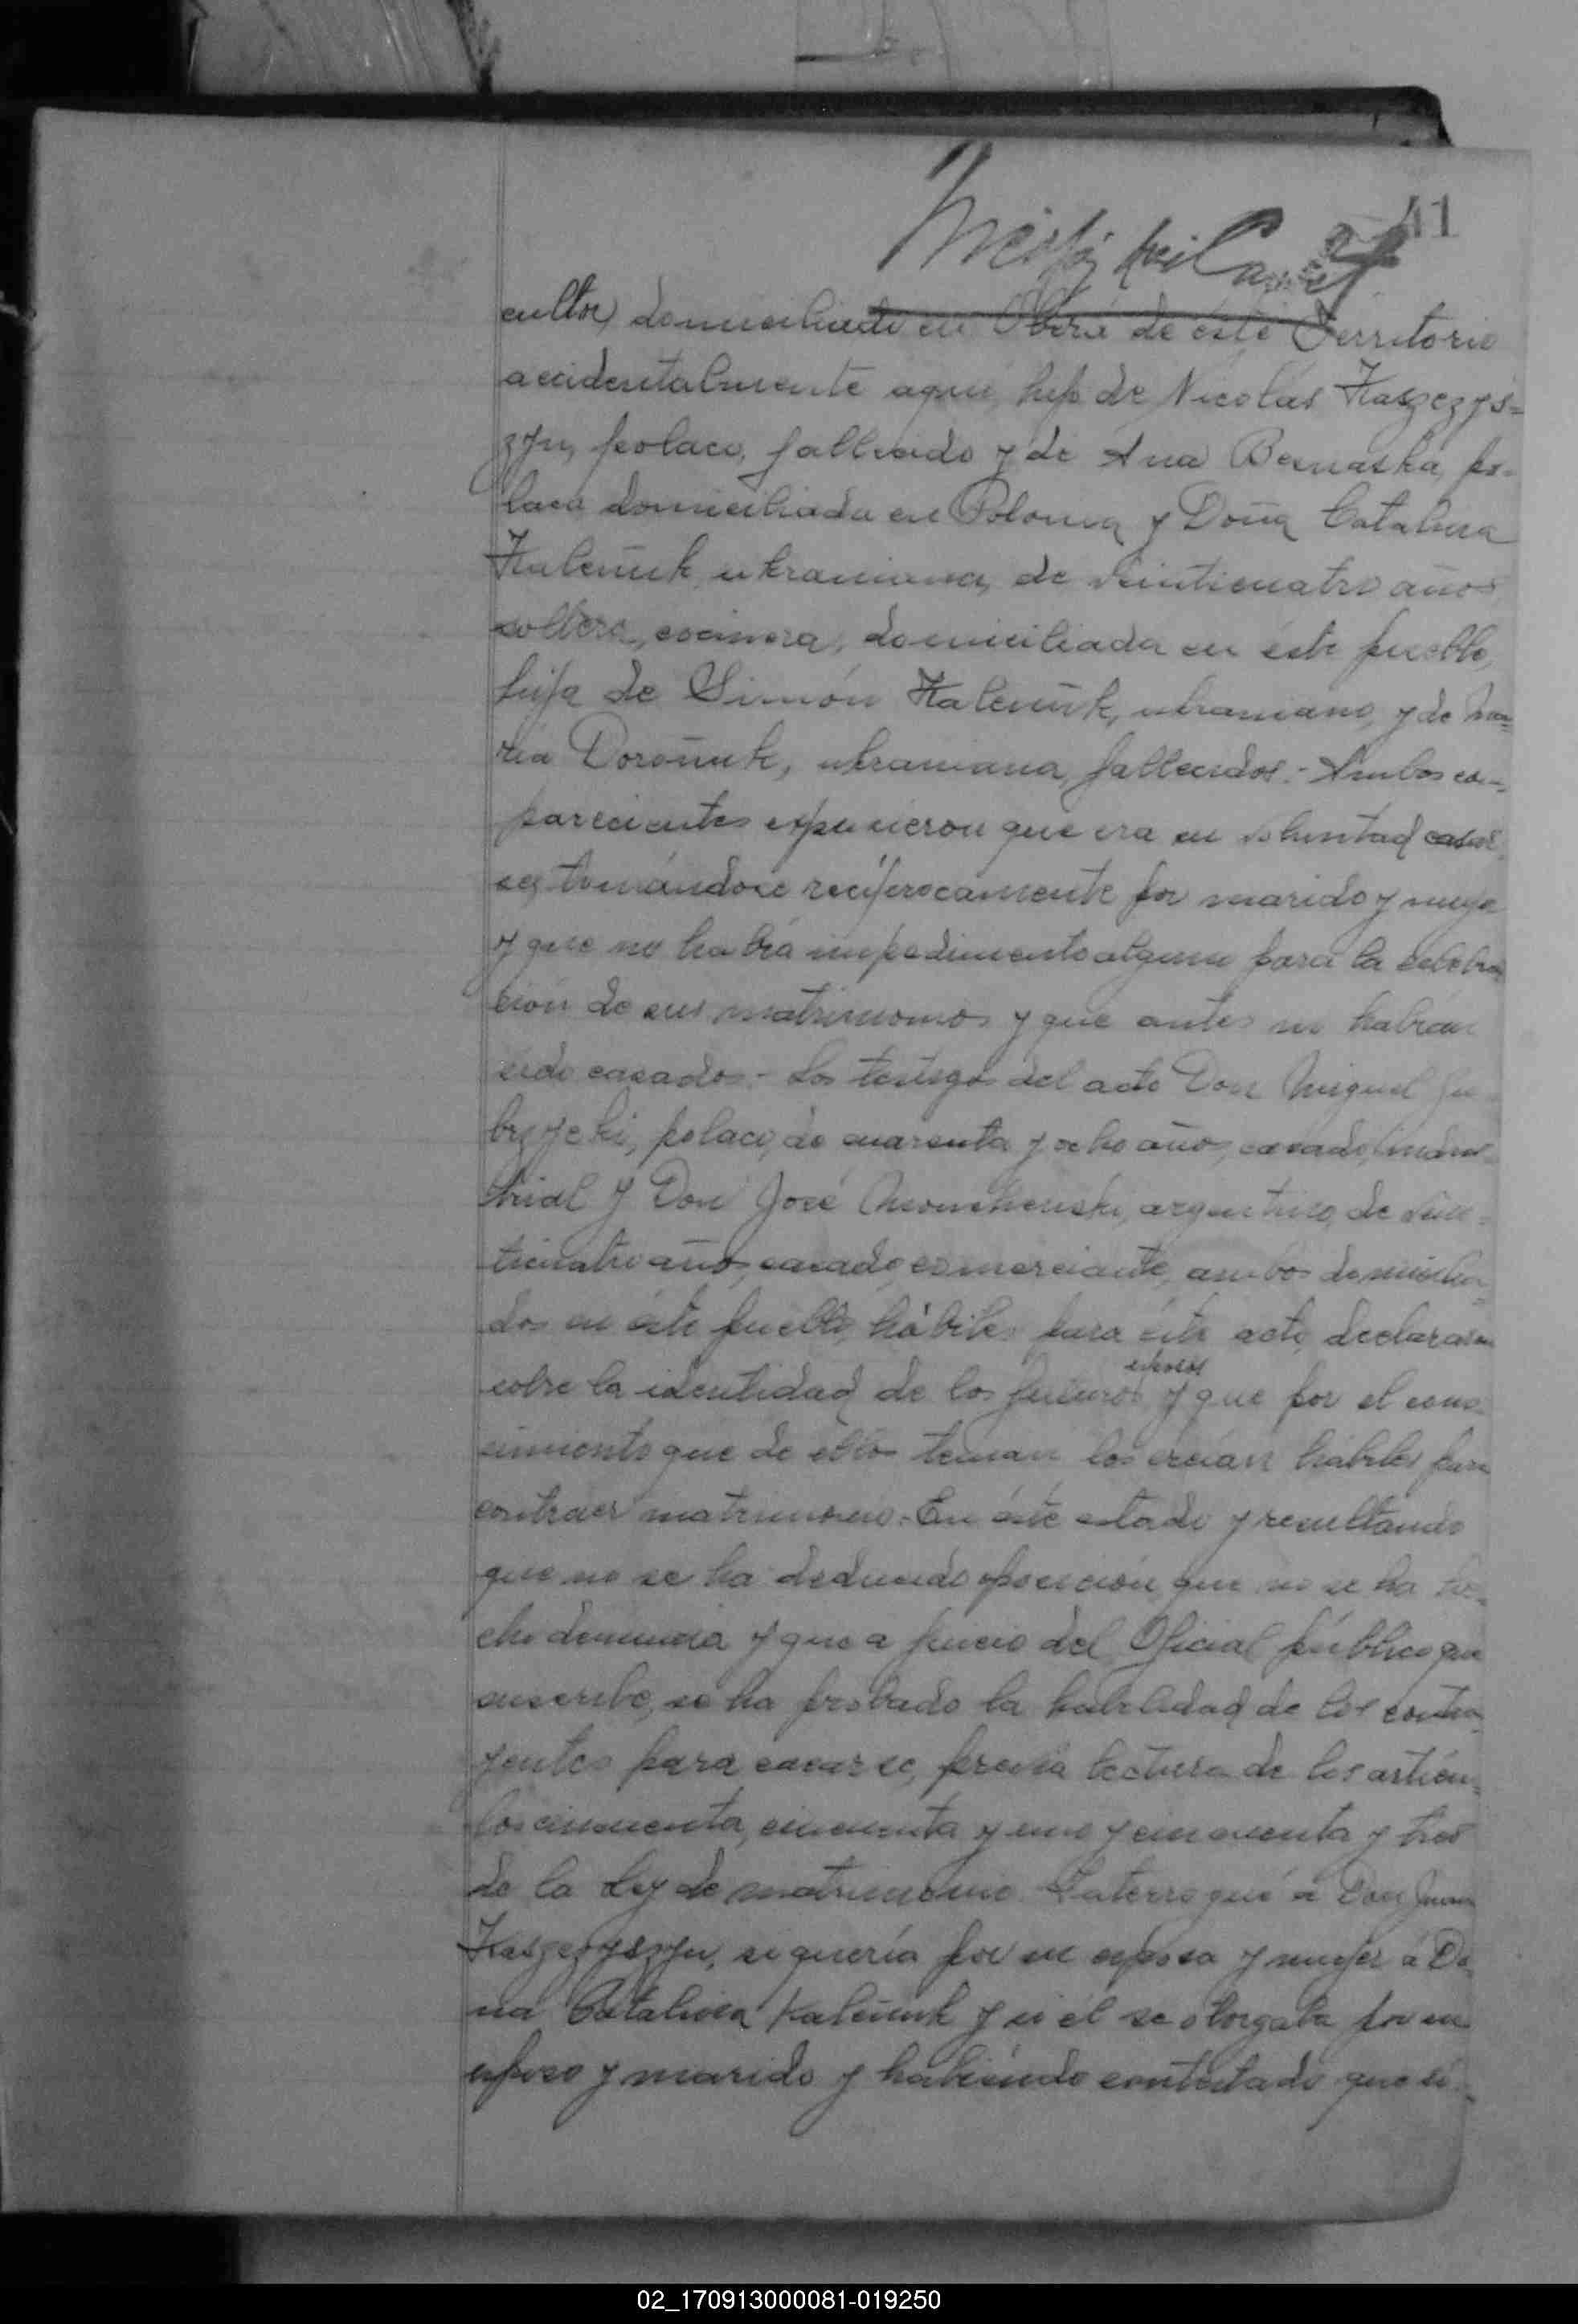 41
cultor, domiciliado en Oberá de éste Territorio
accidentalmente aquí, hijo de Nicolás Kaszczys=
zyn, polaco, fallecido y de Ana Bernaska, po-
laca domiciliada en Polonia y Doña Catalina
Kaleñuk, ukraniana, de veinticuatro años,
soltera, cocinera, domiciliada en éste pueblo,
hija de Simón Kaleñuk, ukraniano, y de Ma=
ría Doroñuk, ukraniana, fallecidos.- Ambos com-
parecientes expusieron que era su voluntad casar
se, tomándose recíprocamente por marido y mujer
y que no había impedimento alguno para la celebra
ción de sus matrimonios y que antes no habían
sido casados.- Los testigos del acto Don Miguel
polaco, de cuarenta y ocho años, casado, indus-
trial y Don José argentino, de vein=
ticuatro años, casado, comerciante, ambos domicilia=
dos en éste pueblo, hábiles para éste acto, declararon
sobre la identidad de los futuros esposos y que por el cono-
cimiento que de ellos tenían, los creían hábiles para
contraer matrimonio.- En éste estado y resultando
que no se ha deducido oposición, que no se ha he-
cho denuncia y que a juicio del Oficial público que
suscribe, se ha probado la habilidad de los contra-
yentes para casarse, previa lectura de los artícu=
los cincuenta, cincuenta y uno y cincuenta y tres
de la Ley de matrimonio. Interrogué á Don Juan
Kaszczyszyn, si quería por su esposa y mujer á Do-
ña Catalina Kaleñuk y si él se otorgaba por su
esposo y marido y habiendo contestado que sí
02_170913000081-019250